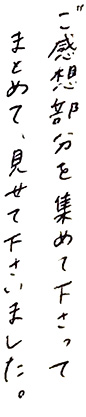 ご感想部分を集めて下さって
まとめて、見せて下さいました。